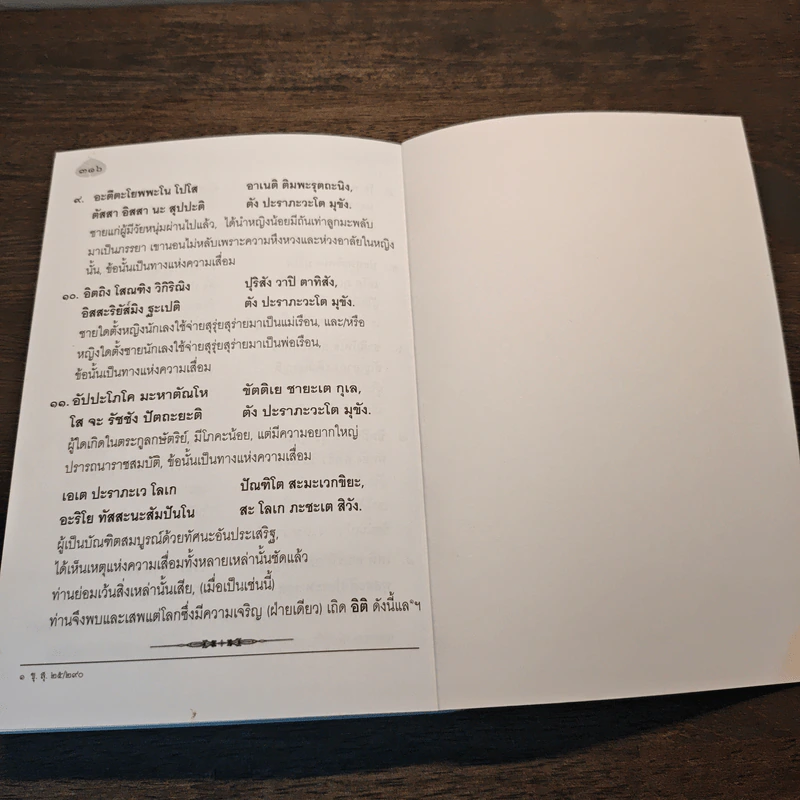 ๓๑๖
๙. อะตีตะโยพพะโน โปโส อาเนติ ติมพะรุตถะนิง,
ตัสสา อิสสา นะ สุปปะติ ตัง ปะราภะวะโต มุขัง.
ชายแก่ผู้มีวัยหนุ่มผ่านไปแล้ว, ได้นำหญิงน้อยมีถันเท่าลูกมะพลับ
มาเป็นภรรยา เขานอนไม่หลับเพราะความหึงหวงและห่วงอาลัยในหญิง
นั้น, ข้อนั้นเป็นทางแห่งความเสื่อม
๑๐. อิตถิง โสณฑิง วิกิริณิง ปุริสัง วาปิ ตาทิสัง,
อิสสะริยัส๎มิง ฐะเปติ ตัง ปะราภะวะโต มุขัง.
ชายใดตั้งหญิงนักเลงใช้จ่ายสุรุ่ยสุร่ายมาเป็นแม่เรือน, และ/หรือ
หญิงใดตั้งชายนักเลงใช้จ่ายสุรุ่ยสุร่ายมาเป็นพ่อเรือน,
ข้อนั้นเป็นทางแห่งความเสื่อม
๑๑. อัปปะโภโค มะหาตัณโห ขัตติเย ชายะเต กุเล,
โส จะ รัชชัง ปัตถะยะติ ตัง ปะราภะวะโต มุขัง.
ผู้ใดเกิดในตระกูลกษัตริย์, มีโภคะน้อย, แต่มีความอยากใหญ่
ปรารถนาราชสมบัติ, ข้อนั้นเป็นทางแห่งความเสื่อม
เอเต ปะราภะเว โลเก ปัณฑิโต สะมะเวกขิยะ,
อะริโย ทัสสะนะสัมปันโน สะ โลเก ภะชะเต สิวัง.
ผู้เป็นบัณฑิตสมบูรณ์ด้วยทัศนะอันประเสริฐ,
ได้เห็นเหตุแห่งความเสื่อมทั้งหลายเหล่านั้นชัดแล้ว
ท่านย่อมเว้นสิ่งเหล่านั้นเสีย, (เมื่อเป็นเช่นนี้)
ท่านจึงพบและเสพแต่โลกซึ่งมีความเจริญ (ฝ่ายเดียว) เถิด อิติ ดังนี้แล๑ฯ
๑ ขุ. สุ. ๒๕/๒๙๐